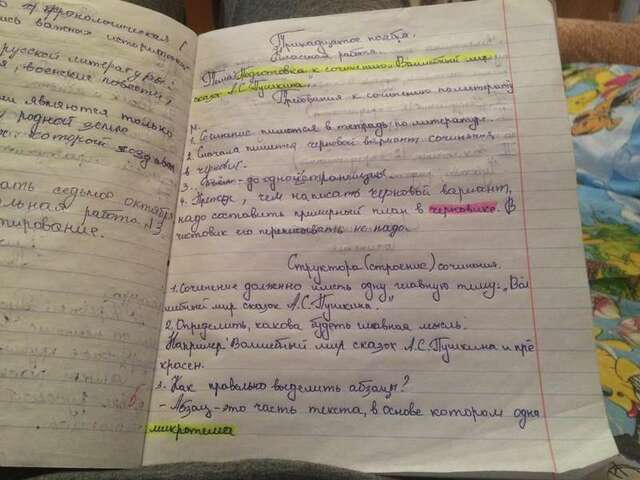 русской литературы:
, воинские повести,
ми являются только
родной земле
которой создавал
ать седьмое октября
льная работа №3
тирование.
Тринадцатое ноября.
Классная работа.
Тема: Подготовка к сочинению. Волшебный мир
сказок А.С.Пушкина.
Требования к сочинению по литературе
1. Сочинение пишется в тетрадь по литературе.
2. Сначала пишется черновой вариант сочинения
в черновике.
3. Объём - до одной страницы
4. Прежде, чем написать черновой вариант,
надо составить примерный план в черновике. В
чистовик его переписывать не надо.
Структора (строение) сочинения.
1. Сочинение должно иметь одну главную тему: „Вол
шебный мир сказок А.С.Пушкина."
2. Определить, какова будеть главная мысль.
Например: Волшебный мир сказок А.С.Пушкина и пре
красен.
3. Как правельно выделить абзацы?
- Абзац - это часть текста, в основе котором одна
микротема